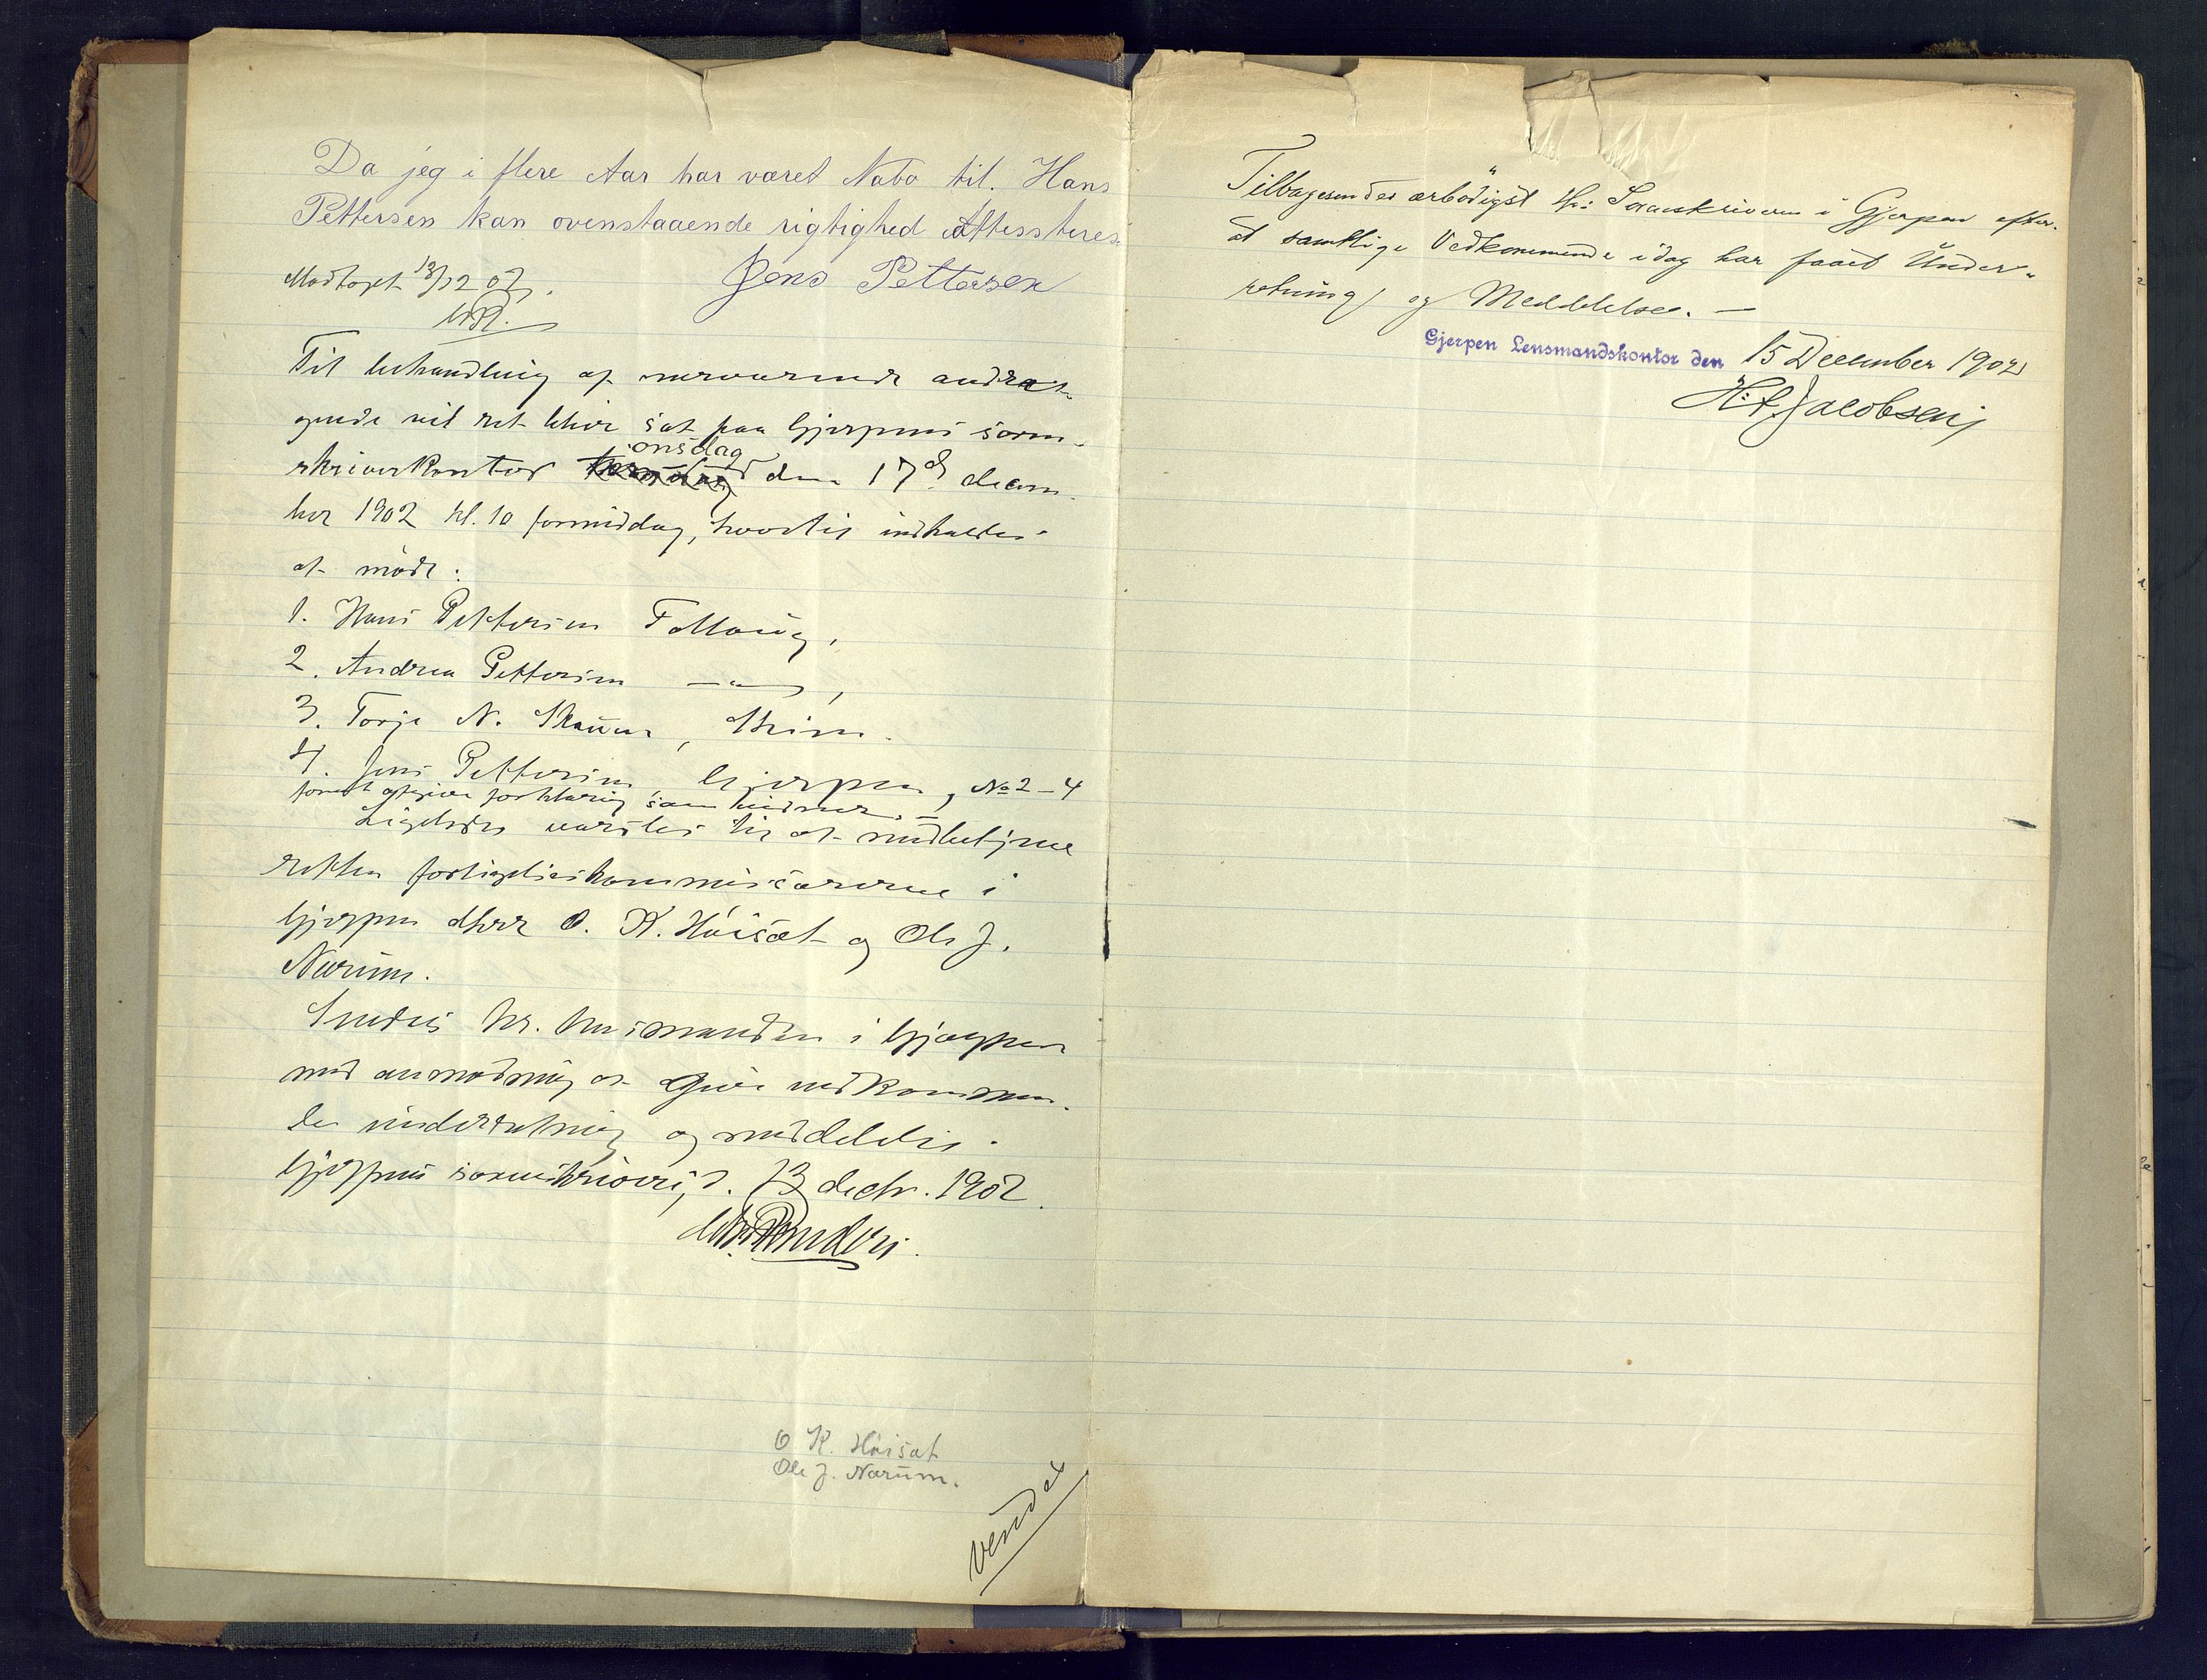 Da jeg i flere Aar har været Nabo til. Hans
Pettersen kan ovenstaaende rigtighed Attessteres.
Jens Pettersen
Modtaget 13/12 02.
Til behandling af nærværende andra-
gende vil ret blive sat paa Gjerpens soren-
skriverkontor onsdag den 17de decem-
ber 1902 kl. 10 formiddag, hvortil indkaldes
at møde:
1. Hans Pettersen Follaug,
2. Andrea Pettersen — " — ,
3. Torje N. , Skien.
4. Jens Pettersen, Gjerpen, No 2-4
for at afgive forklaring som vidner. —
Ligeledes varsles til at medbetjene
retten forligelseskommissærerne i
Gjerpen dhrr O. K. Höisæt og Ole J.
Narum.
Sendes hr. lensmanden i Gjerpen
med anmodning at give vedkommen-
de underretning og meddelelse.
Gjerpens sorenskriveri, d. 13 decbr. 1902.
O K. Höisæt
Ole J. Narum.
Vend at
Tilbagesendes ærbödigst Hr: Sorenskriveren i Gjerpen efter-
at samtlige Vedkommende idag har faaet Under-
retning og Meddelelse. —
Gjerpen Lensmandskontor den 15 December 1902
H. F. Jacobsen